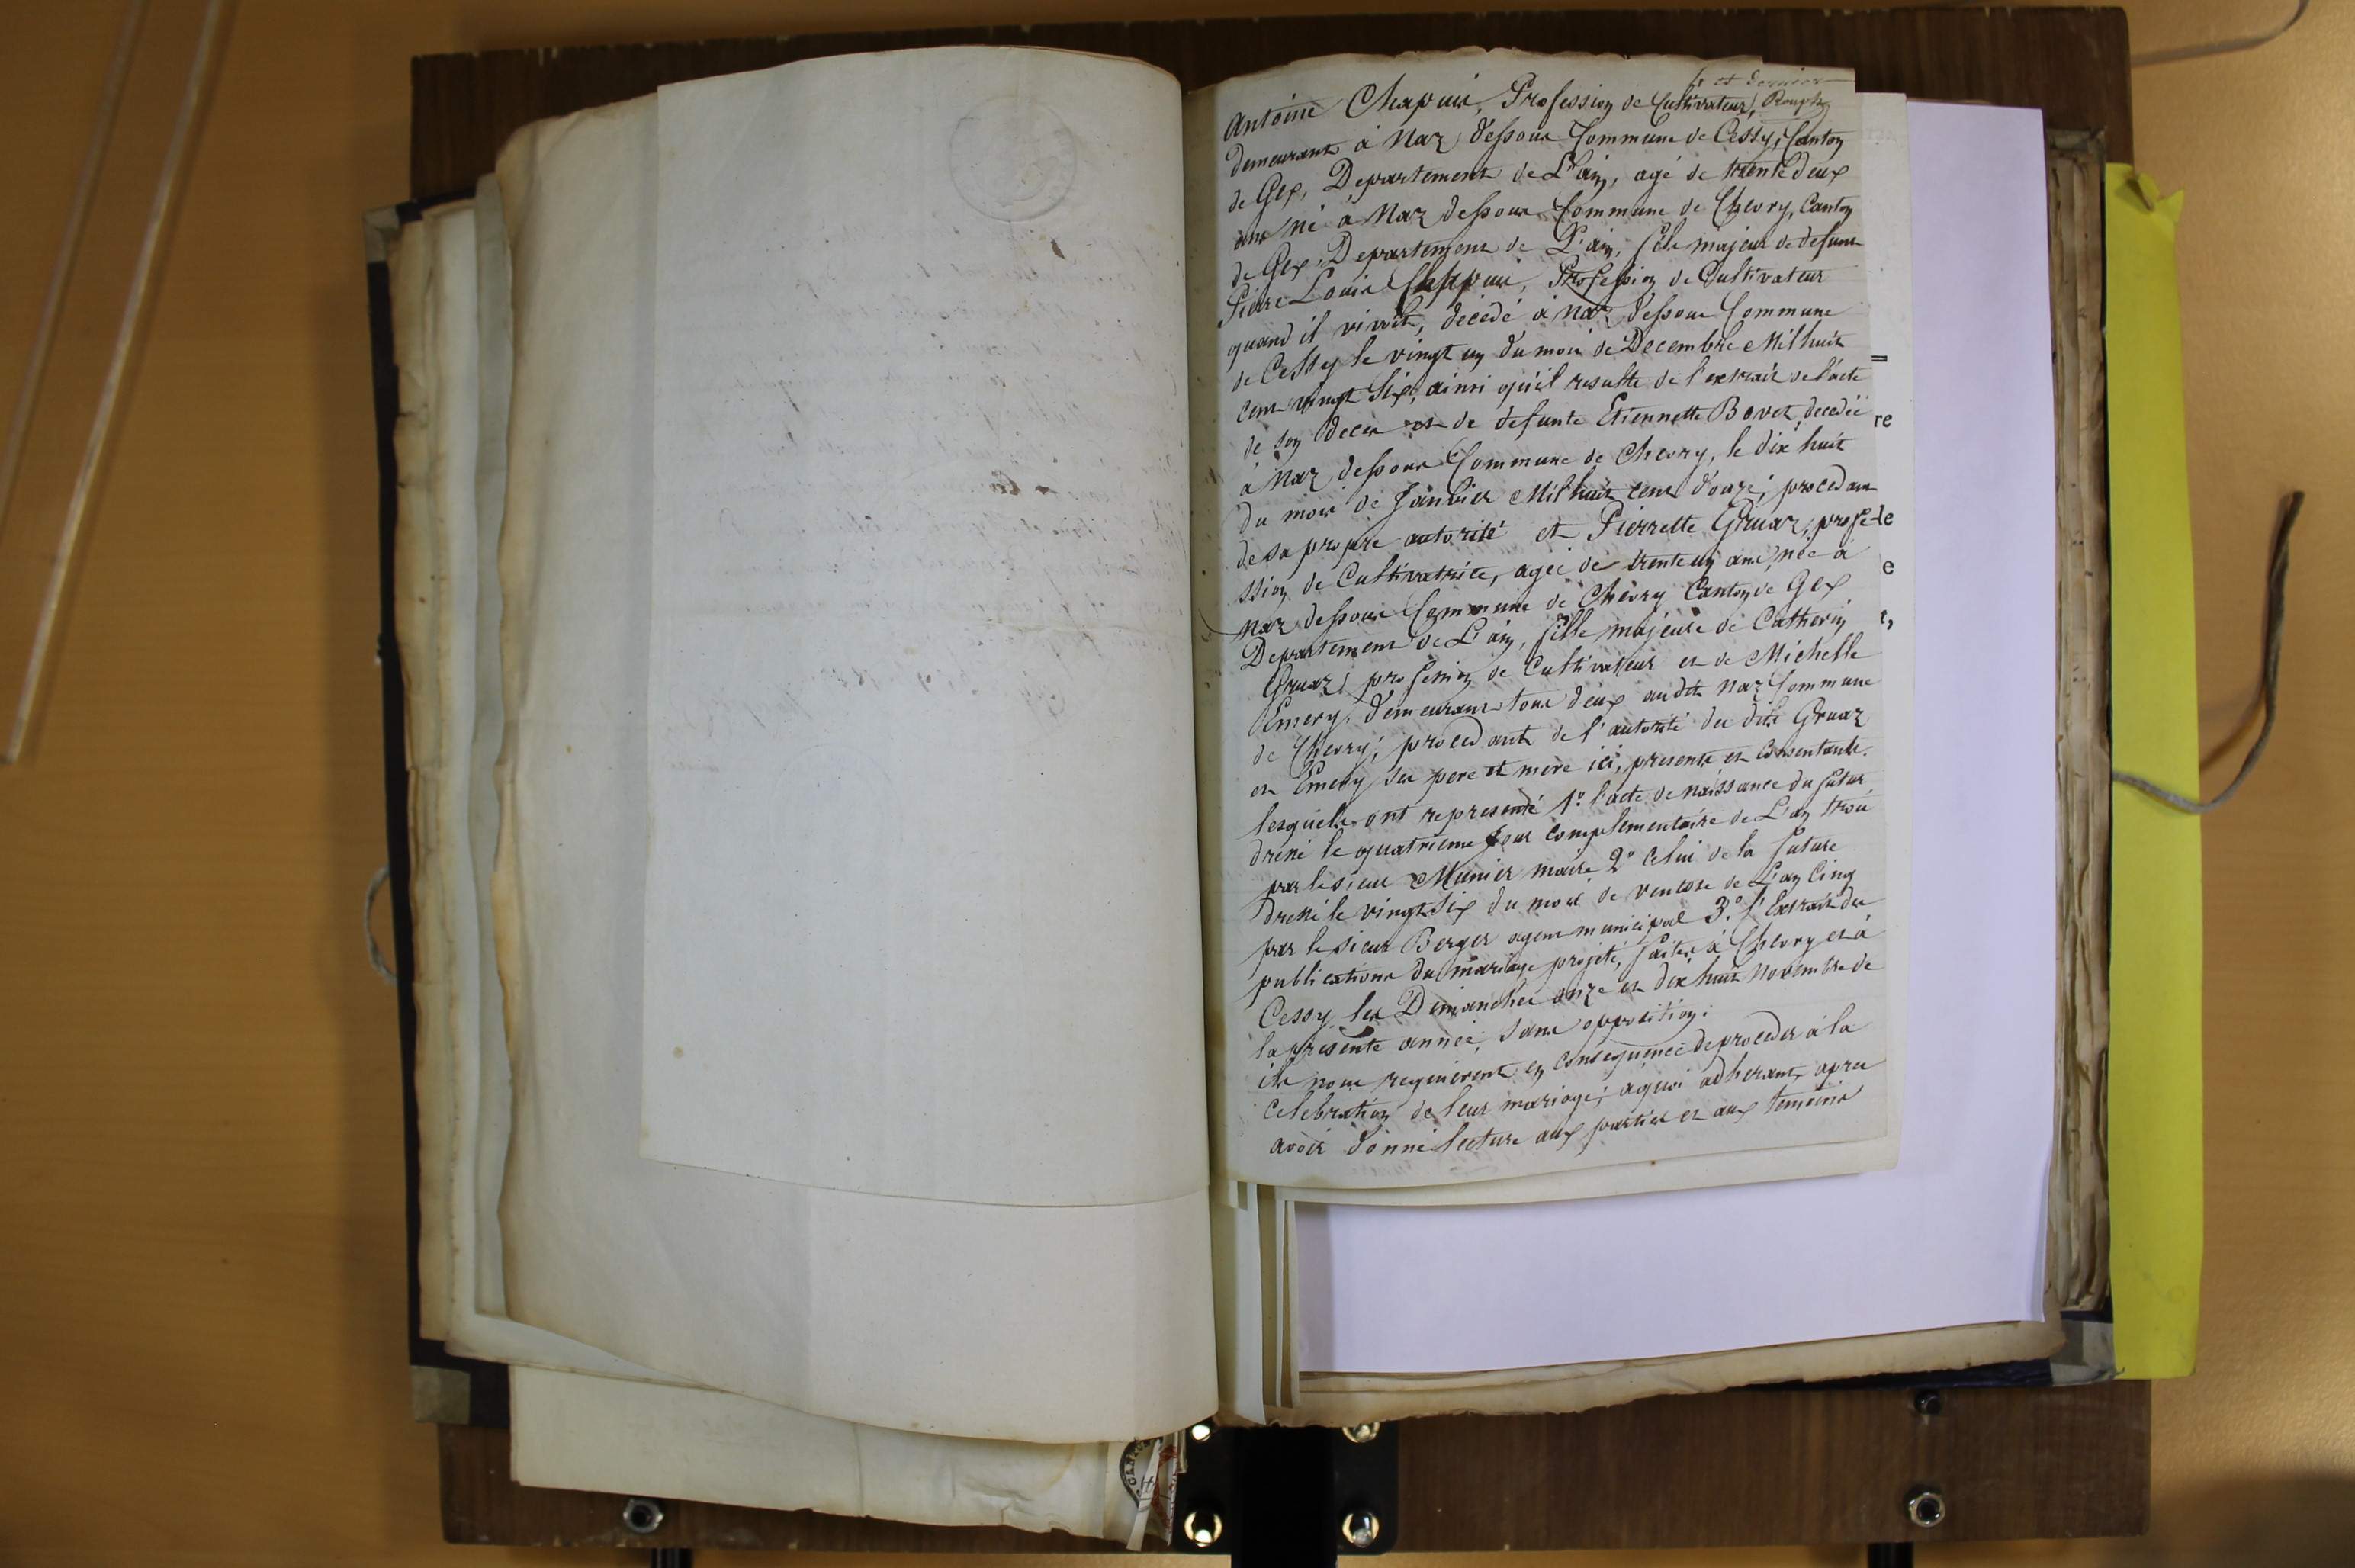 4 et dernier
Antoine Chapuis, Profession de Cultivateur,
demeurant à Naz dessous Commune de Cessy, Canton
de Gex, Departement de L'ain, agé de trente deux
ans né à Naz dessous Commune de Chevry, Canton
de Gex, Departement de L'ain, fils majeur de defunt
Pierre Louis Chapuis, Profession de Cultivateur
quand il vivoit, décédé à Naz dessous Commune
de Cessy le vingt un du mois de Decembre Mil huit
cent vingt Six, ainsi qu'il resulte de l'extrait de l'acte
de son deces et de defunte Etiennette Bovet, decedée
à Naz dessous Commune de Chevry, le dix huit
du mois de Janvier Mil huit cent douze; procedant
de sa propre autorité et Pierrette Gruaz, profe-
ssion de Cultivatrice, agée de trente un ans, née à
Naz dessous Commune de Chevry Canton de Gex
Departement de L'ain, fille majeure de Catherin
Gruaz, profession de Cultivateur et de Michelle
Emery, demeurant tous deux audit Naz Commune
de Chevry; procedante de l'autorité des dits Gruaz
et Emery ses pere et mere ici, presents et Consentants.
lesquels ont representé 1.º l'acte de naissance du futur
dressé le quatrieme jour complementaire de L'an trois
par le sieur Munier maire 2º Celui de la future
dressé le vingt Six du mois de ventose de L'an Cinq
par le sieur Berger agent municipal 3.º l'Extrait des
publications du mariage projeté, faites à Chevry et à
Cessy les Dimanches onze et dix huit Novembre de
la presente année, sans opposition;
ils nous requierent en consequence de proceder à la
Celebration de leur mariage; aquoi adherant, apres
avoir donné lecture aux parties et aux temoins
=
re
le
e